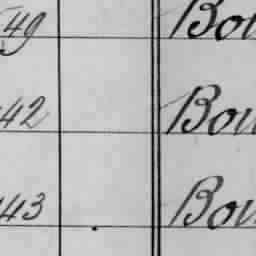 49 Bou
42 Bou
43 Bou